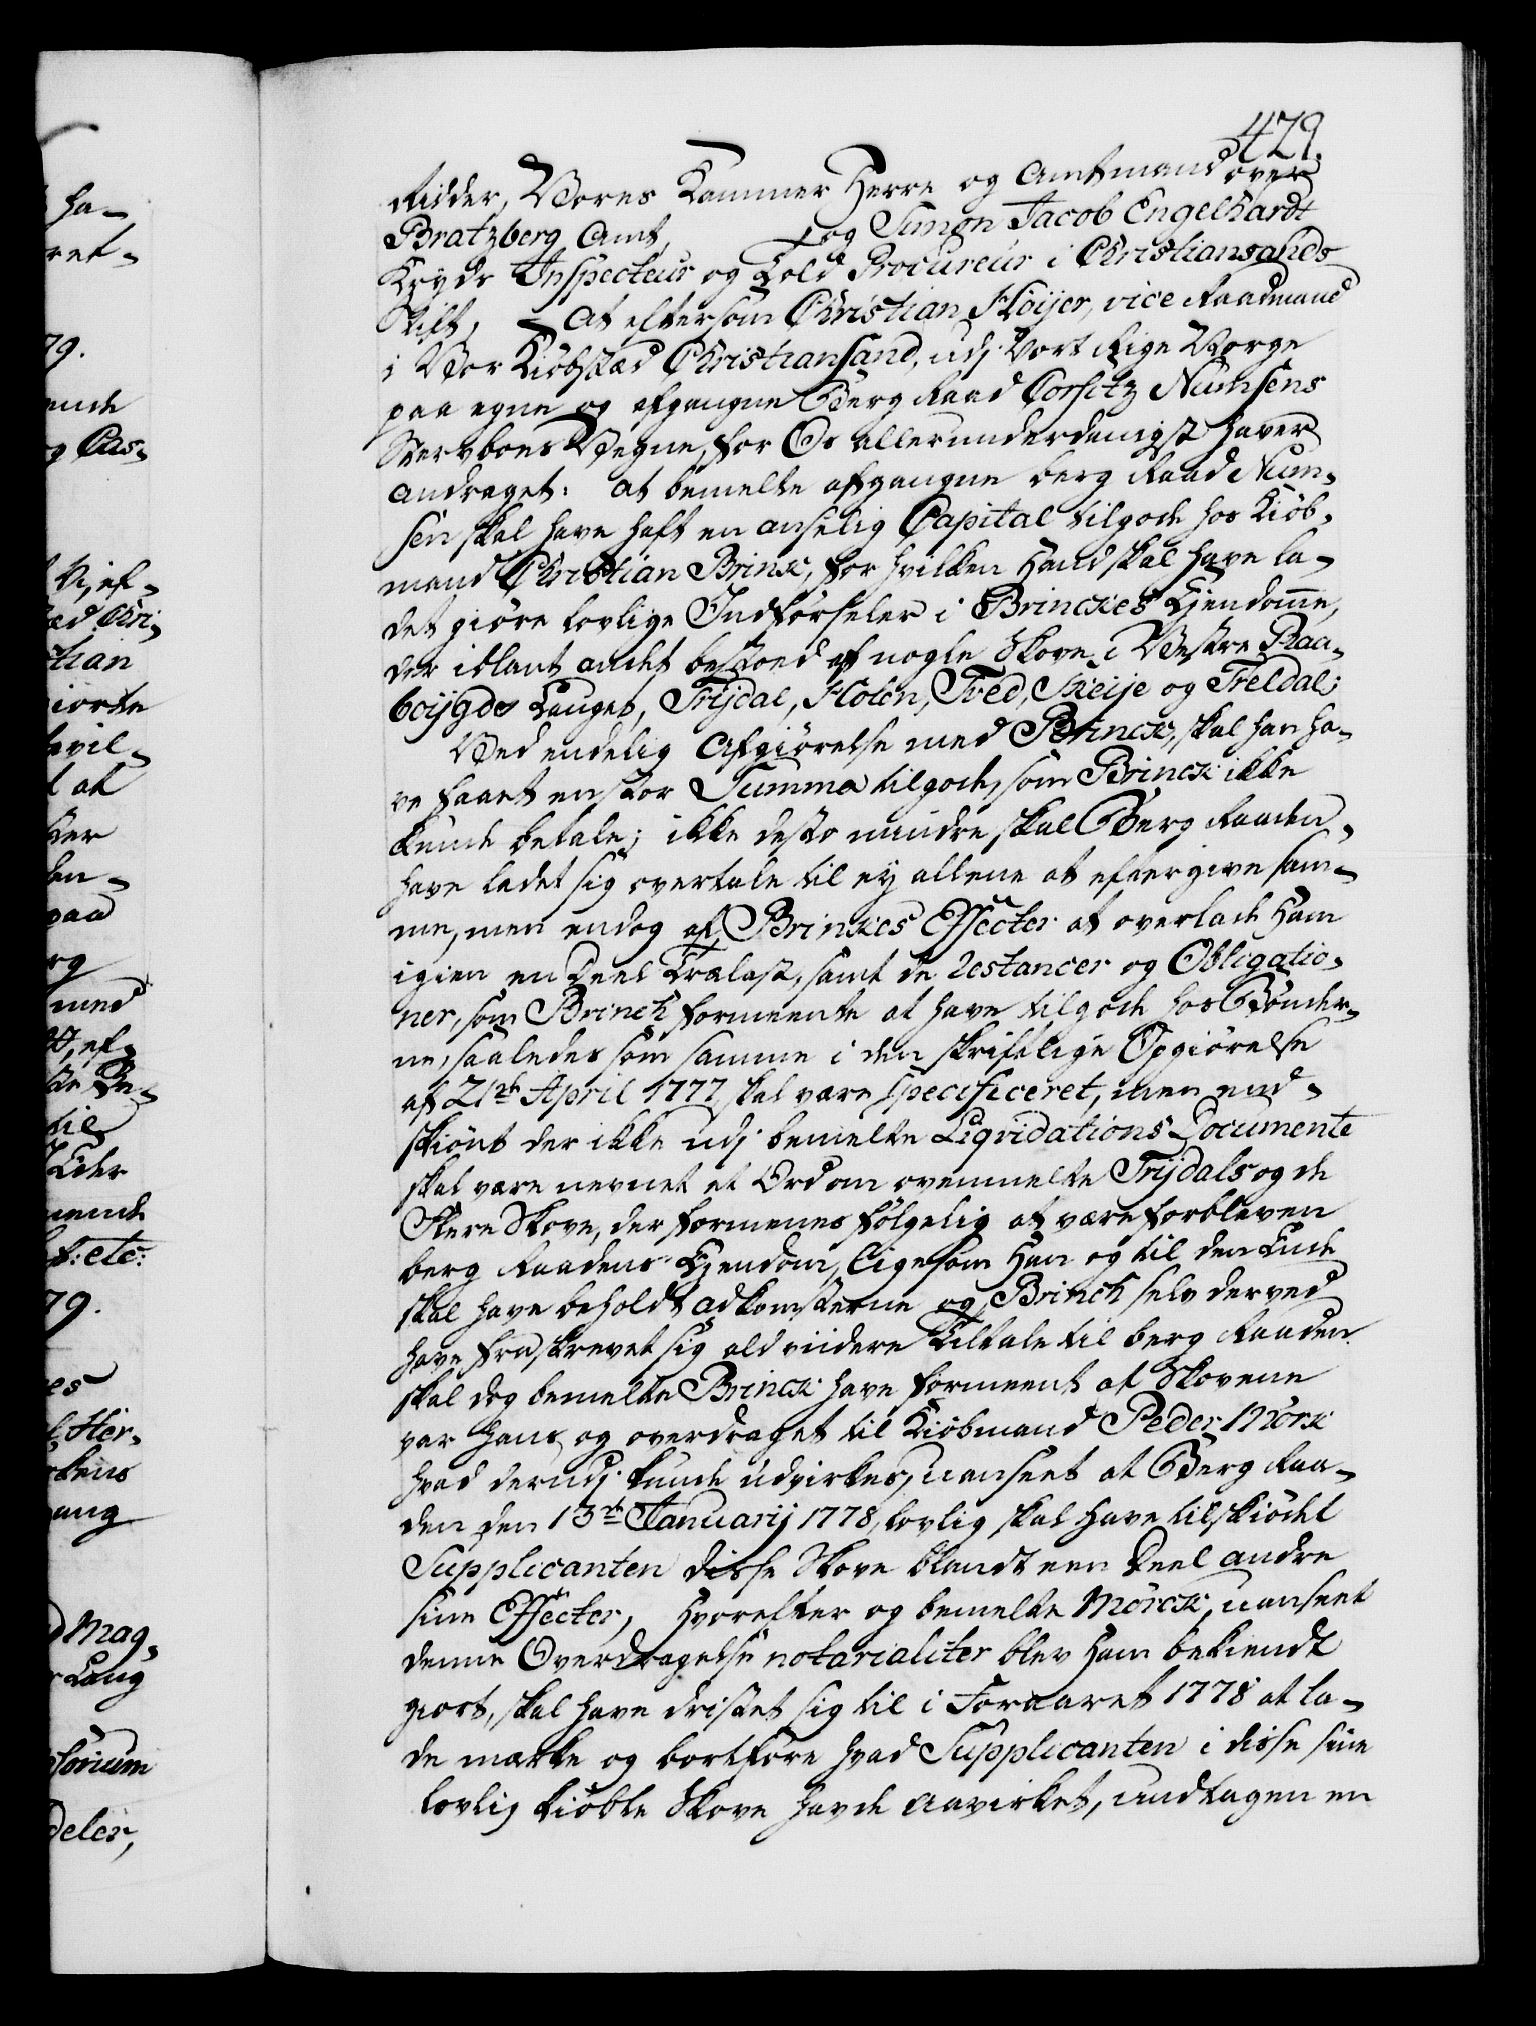 429.
Ridder, Vores Kammer Herre og Amtmand over
Bratzberg Amt, og Simon Jacob Engelhardt
Kryds Inspecteur og Told Procureur i Christiansands
Stift, At eftersom Christian Höijer, vice Raadmand
i Vor Kiöbstæd Christiansand, udj Vort Rige Norge
paa egne og afgangne Berg Raad Corfitz Numsens
Sterboes Vegne, for Os allerunderdanigst haver
andraget: at bemelte afgangne berg Raad Num-
sen skal have haft en anselig Capital tilgode hos Kiöb-
mand Christian Brinck, for hvilken Hand skal have la-
det giöre lovlige Indförseler i Brinckes Ejendomme,
der iblant andet bestoed af nogle Skove i Vestre Raa-
böijgdes Lauget, Trijdal, Holen, Tved, Skeije og Treldal;
Ved endelig Afgiörelse med Brinck, skal han ha-
ve faaet en stor Summa tilgode, som Brinck ikke
kunde betale; ikke desto mindre skal Berg Raaden
have ladet sig overtale til ey allene at eftergive sam-
me, men endog af Brinckes Effecter at overlade Ham
igien en Deel Trælast, samt de Restancer og Obligatio-
ner, som Brinck formeente at have tilgode hos Bönder-
ne, saaledes som samme i den skriftlige Opgiörelse
af 21de April 1777 skal være specificeret, men end-
skiönt der ikke udj bemelte Liqvidations Documente
skal være nevnet et Ord om ovenmelte Trijdals og de
flere Skove, der formenes fölgelig at være forbleven
berg Raadens Ejendom, ligesom Han og til den Ende
skal have beholdt adkomsterne og Brinck selv derved
have fraskrevet sig ald viidere Tiltale til berg Raaden
skal dog bemelte Brinck have formeent at Skovene
var Hans og overdraget til Kiöbmand Peder Mörck
hvad derudj kunde udvirkes, uanseet at Berg Raa-
den den 13de Januarij 1778, lovlig skal have tilskiödet
Supplicanten disse Skove blandt een Deel andre
sine Effecter, Hvorefter og bemelte Mörck, uanseet
denne Overdragelse notarialiter blev Ham bekiendt
giort, skal have dristet sig til i Foraaret 1778 at la-
de mærke og bortföre hvad Supplicanten i disse sine
lovlig kiöbte Skove havde aavirket, undtagen en